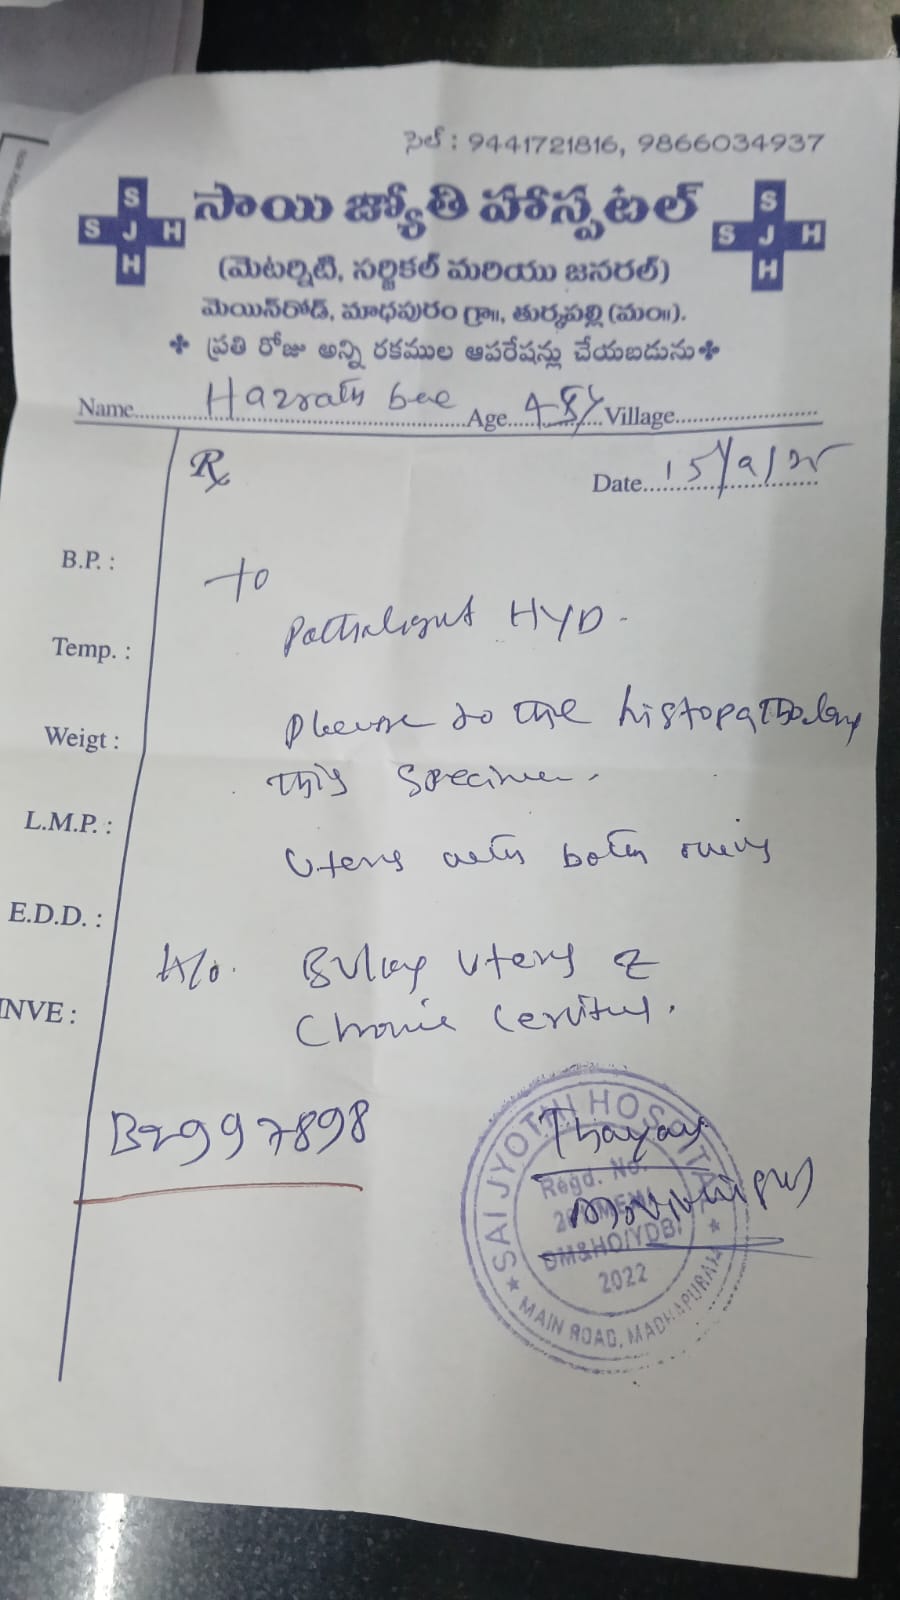 సెల్ : 9441721816, 9866034937
S
S J H
H
సాయి జ్యోతి హాస్పటల్
S
S J H
H
(మెటర్నిటి, సర్జికల్ మరియు జనరల్)
మెయిన్‌రోడ్, మాధపురం గ్రా॥, తుర్కపల్లి (మం॥).
✤ ప్రతి రోజు అన్ని రకముల ఆపరేషన్లు చేయబడును ✤
Name Hazrath bee Age 48y Village
Rx
Date 15/9/25
B.P. :
To
Pathalogist HYD.
Temp. :
Please do the histopathology
Weigt :
this Specimen.
L.M.P. :
Uterus with both ovaries
E.D.D. :
H/o. Bulky Uterus
INVE :
Chronic Cervitus.
B2997898
Thayou
SAI JYOTHI HOSPITAL
Regd. No.
DM&HO/YDB/
2022
★ MAIN ROAD, MADHAPURAM ★